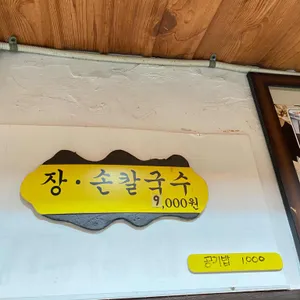 장·손칼국수
9,000원
공기밥 1000